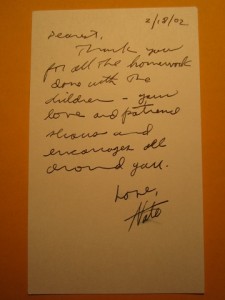 2/18/02
Dearest,
Thank you
for all the homework
done with the
children – your
love and patience
shows and
encourages all
around you.
Love,
Nate